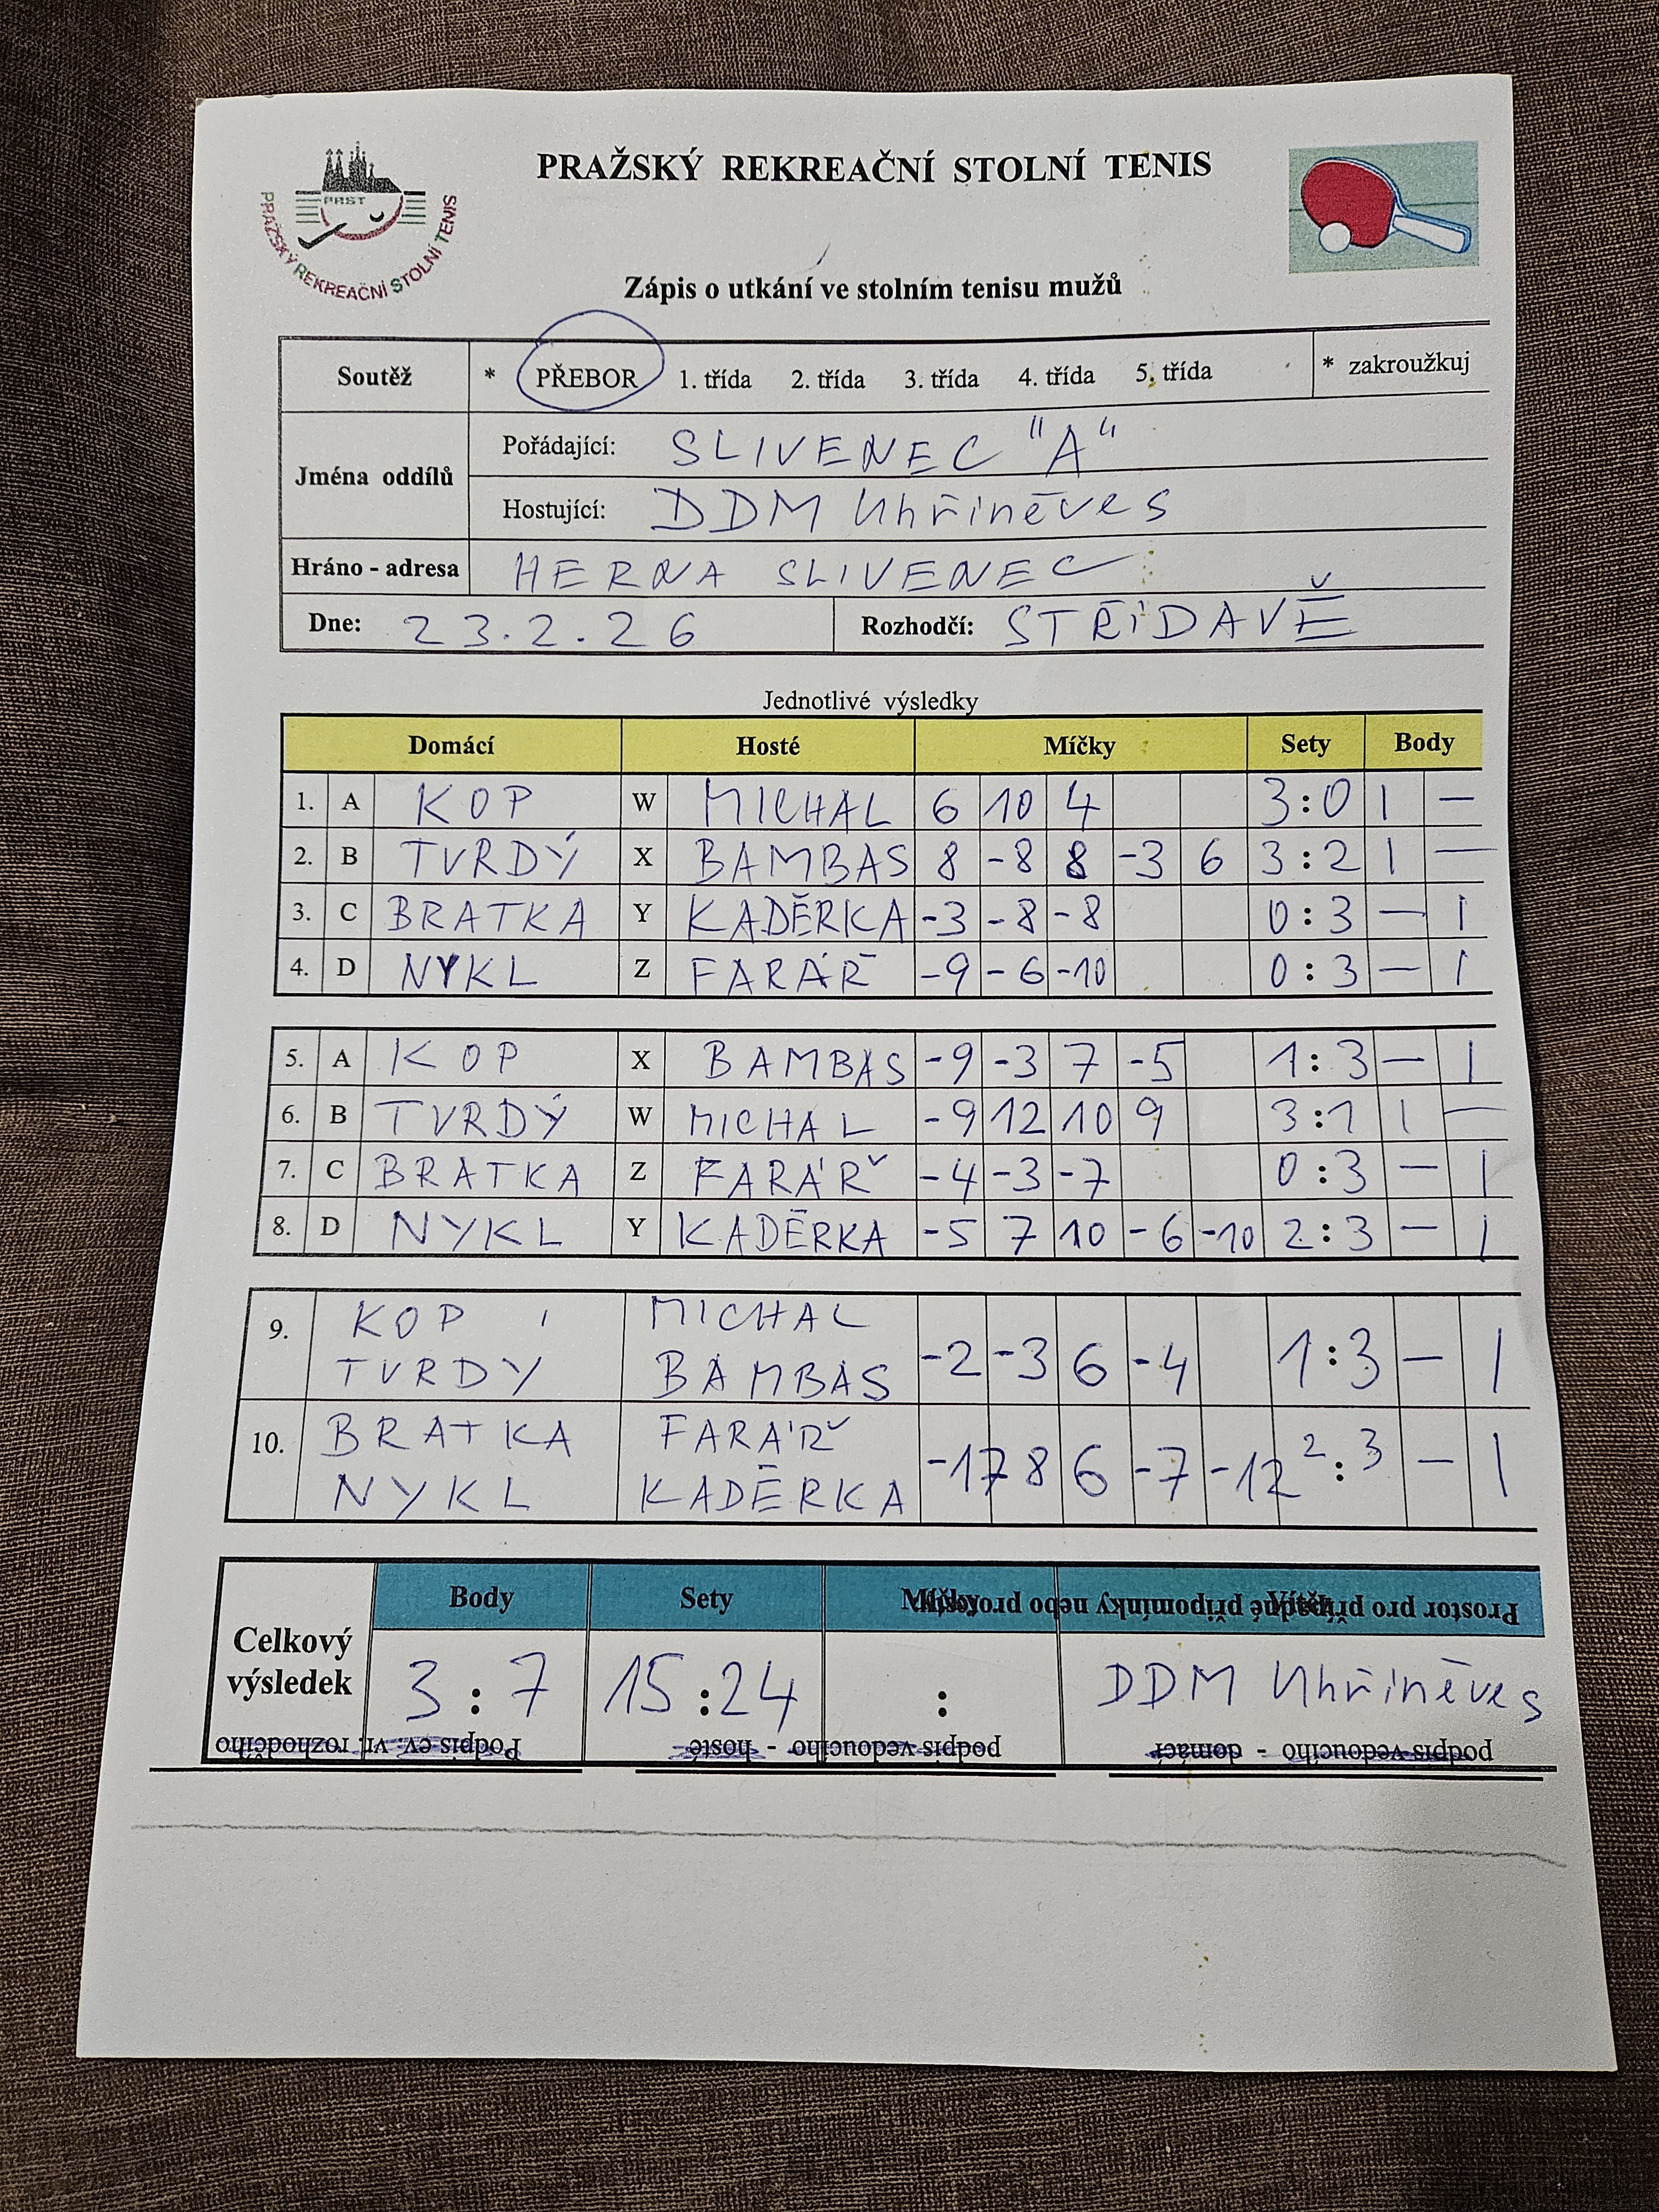 PRAŽSKÝ REKREAČNÍ STOLNÍ TENIS
PRST
PRAŽSKÝ REKREAČNÍ STOLNÍ TENIS
Zápis o utkání ve stolním tenisu mužů
Soutěž * PŘEBOR 1. třída 2. třída 3. třída 4. třída 5. třída * zakroužkuj
Jména oddílů
Pořádající: SLIVENEC "A"
Hostující: DDM Uhříněves
Hráno - adresa HERNA SLIVENEC
Dne: 23.2.26 Rozhodčí: STŘÍDAVĚ
Jednotlivé výsledky
Domácí Hosté Míčky Sety Body
1. A KOP W MICHAL 6 10 4 3:0 1 –
2. B TVRDÝ X BAMBAS 8 -8 8 -3 6 3:2 1 –
3. C BRATKA Y KADĚRKA -3 -8 -8 0:3 – 1
4. D NYKL Z FARÁŘ -9 -6 -10 0:3 – 1
5. A KOP X BAMBAS -9 -3 7 -5 1:3 – 1
6. B TVRDÝ W MICHAL -9 12 10 9 3:1 1 –
7. C BRATKA Z FARÁŘ -4 -3 -7 0:3 – 1
8. D NYKL Y KADĚRKA -5 7 10 -6 -10 2:3 – 1
9. KOP MICHAL
TVRDÝ BAMBAS -2 -3 6 -4 1:3 – 1
10. BRATKA FARÁŘ
NYKL KADĚRKA -17 8 6 -7 -12 2:3 – 1
Body Sety Míčky
Prostor pro případné připomínky nebo protesty
Celkový výsledek 3:7 15:24 : DDM Uhříněves
podpis vedoucího - domácí podpis vedoucího - hosté Podpis ev. vr. rozhodčího